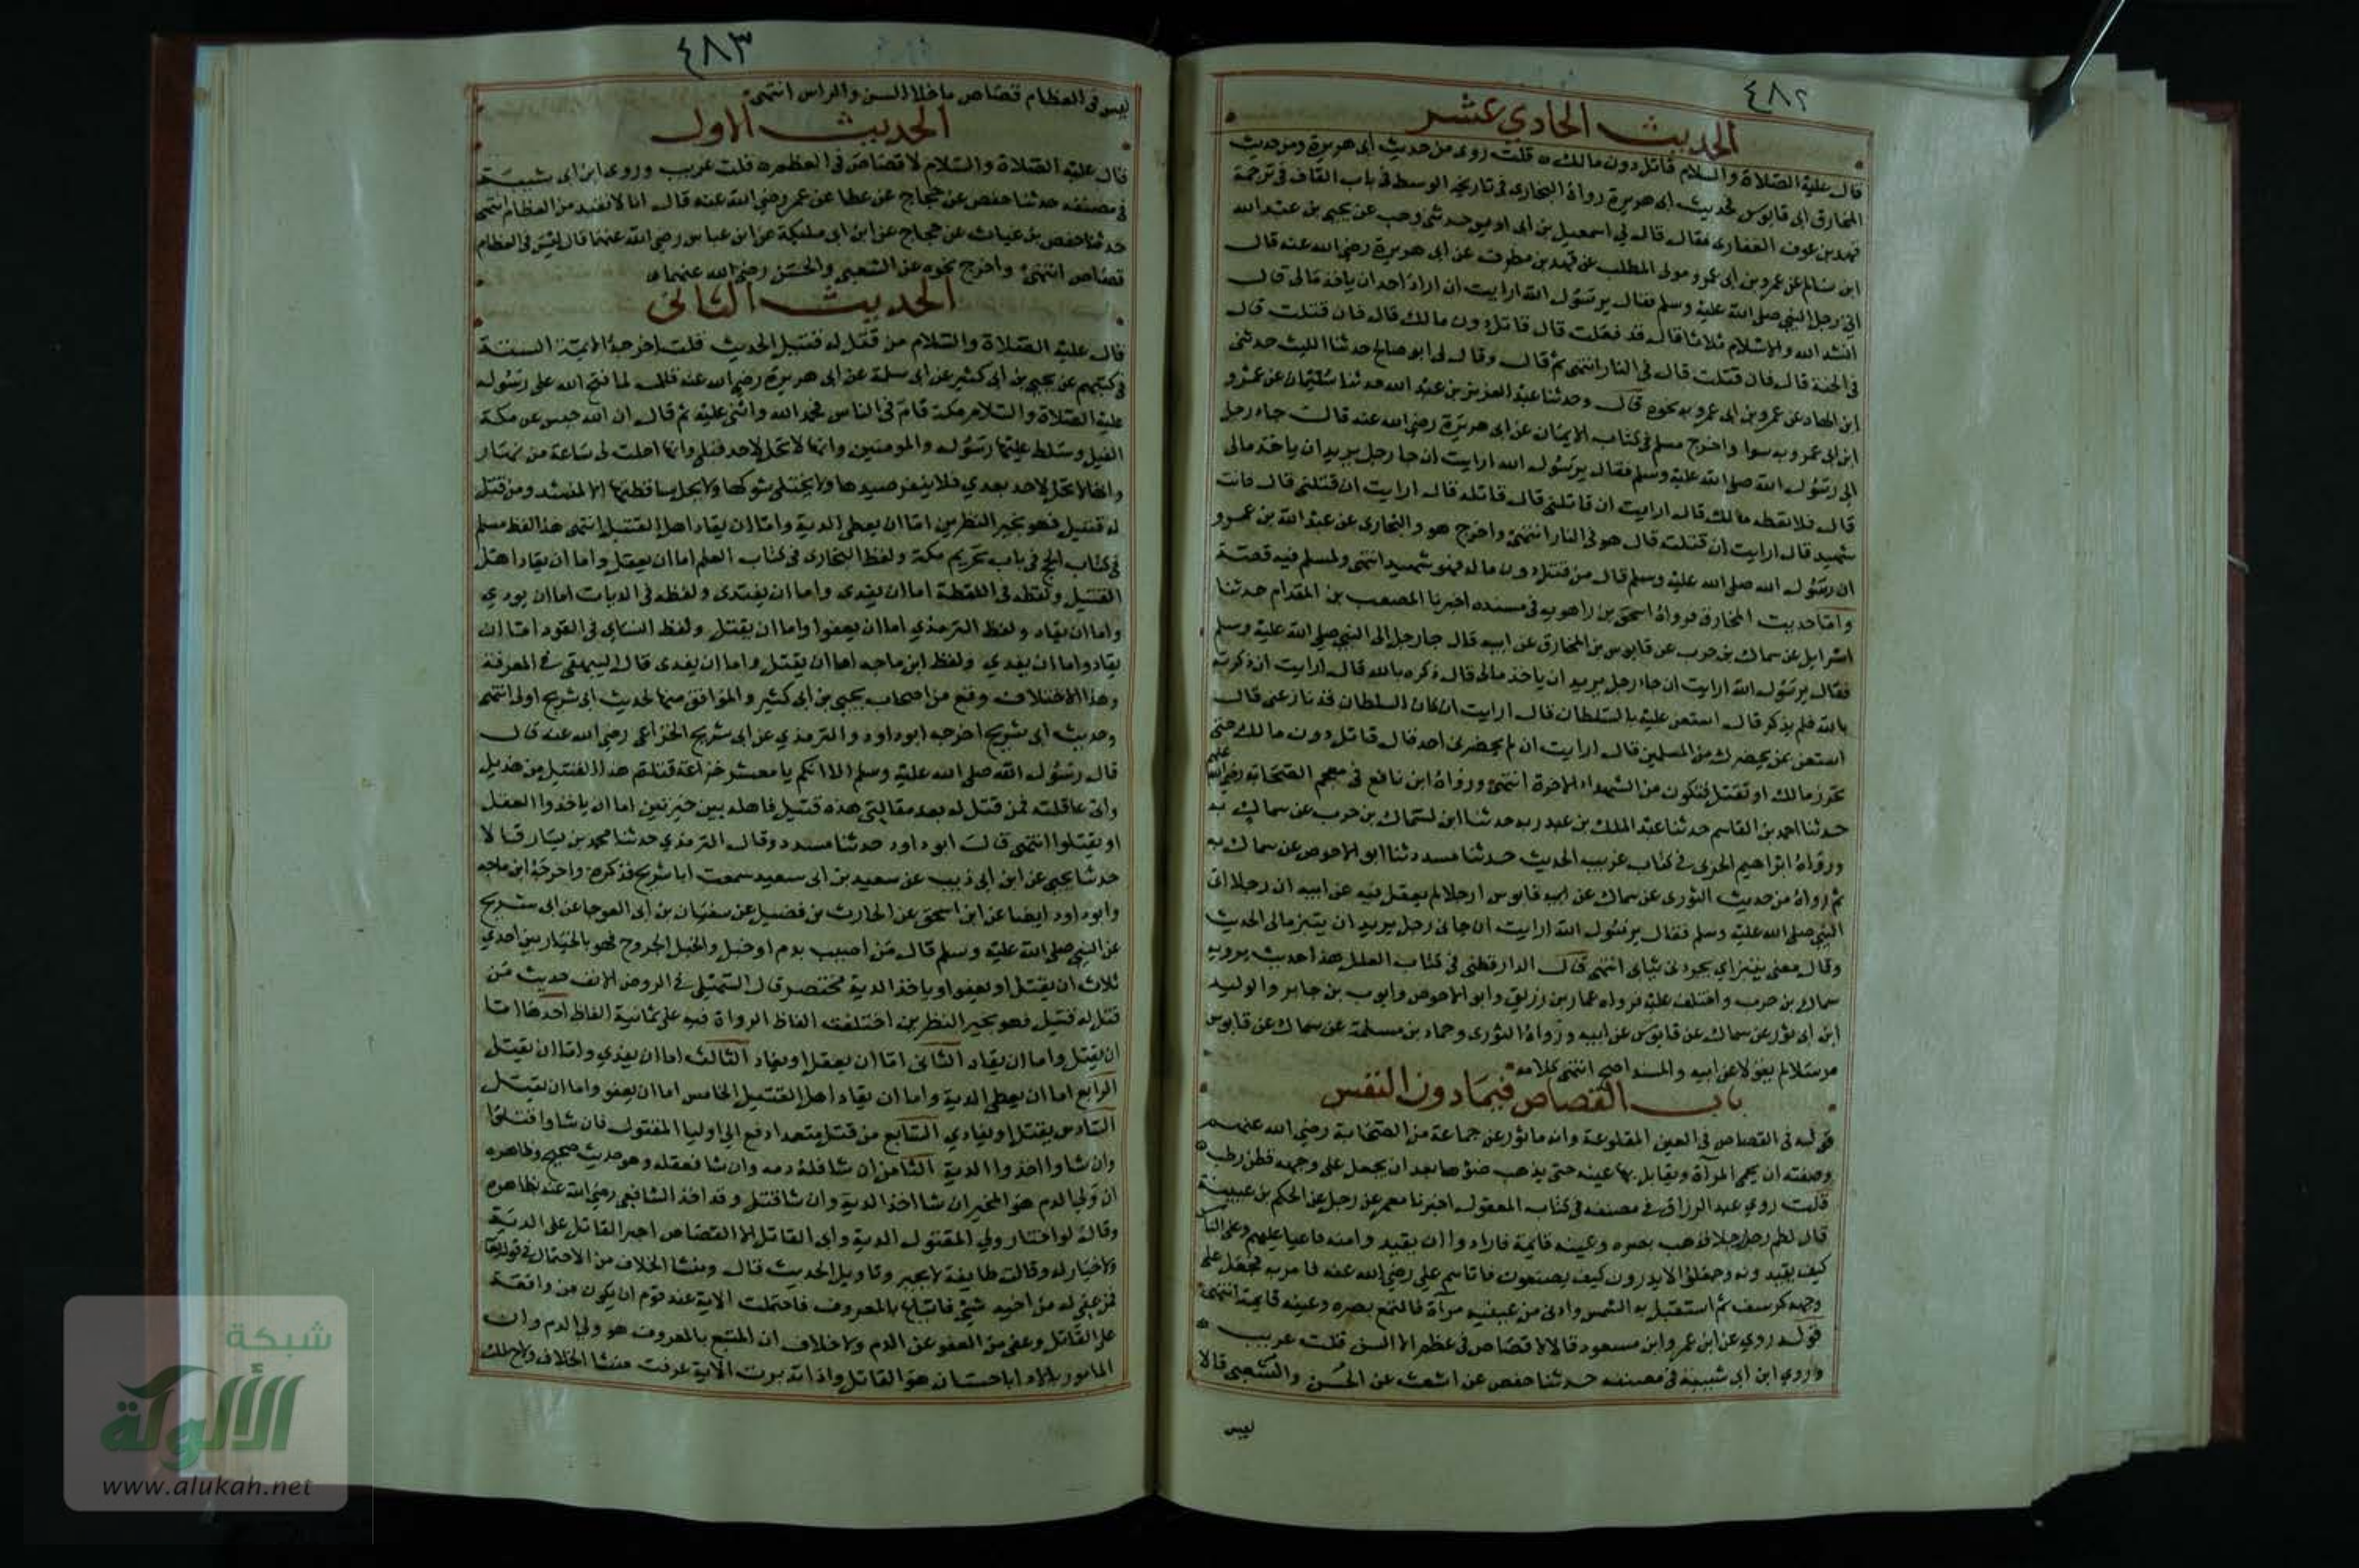 ٤٨٢
الحديث الحادي عشر
قال عليه الصلاة والسلام قاتل دون مالك ه قلت روى من حديث ابى هريرة ومن حديث
المخارق ابى قابوس فحديث ابى هريرة رواه البخارى فى تاريخه الوسط فى باب القاف فى ترجمة
قهيد بن عوف الغفارى فقال قال لى اسمعيل بن ابى اويس حدثنى وهب عن يحيى بن عبد الله
ابن سالم عن عمرو بن ابى عمرو مولى المطلب عن قهيد بن مطرف عن ابى هريرة رضى الله عنه قال
اتى رجل النبى صلى الله عليه وسلم فقال يرسول الله ارايت ان اراد احد ان ياخذ مالى قال
انشد الله والاسلام ثلاثا قال قد فعلت قال قاتل دون مالك قال فان قتلت قال
فى الجنة قال فان قتلت قال فى النار انتهى ثم قال وقال لى ابو صالح حدثنا الليث حدثنى
ابن الهاد عن عمرو بن ابى عمرو به نحوه قال وحدثنا عبد العزيز بن عبد الله حدثنا سليمان عن عمرو
ابن ابى عمرو به سوا واخرج مسلم فى كتاب الايمان عن ابى هريرة رضى الله عنه قال جاء رجل
الى رسول الله صلى الله عليه وسلم فقال يرسول الله ارايت ان جا رجل يريد ان ياخذ مالى
قال فلا تعطه مالك قال ارايت ان قاتلنى قال قاتله قال ارايت ان قتلنى قال فانت
شهيد قال ارايت ان قتلته قال هو فى النار انتهى واخرج هو والبخارى عن عبد الله بن عمرو
ان رسول الله صلى الله عليه وسلم قال من قتل دون ماله فهو شهيد انتهى ولمسلم فيه قصة
واما حديث المخارق فرواه اسحق بن راهويه فى مسنده اخبرنا المصعب بن المقدام حدثنا
اسرايل عن سماك بن حرب عن قابوس بن المخارق عن ابيه قال جا رجل الى النبى صلى الله عليه وسلم
فقال يرسول الله ارايت ان جاء رجل يريد ان ياخذ مالى قال ذكره بالله قال ارايت ان ذكرته
بالله فلم يذكر قال استعن عليه بالسلطان قال ارايت ان كان السلطان قد نازعنى قال
استعن بمن يحضرك من المسلمين قال ارايت ان لم يحضرنى احد قال قاتل دون مالك حتى
تحرز مالك او تقتل فتكون من الشهداء الاخرة انتهى ورواه ابن نافع فى معجم الصحابة رضى الله عنهم
حدثنا احمد بن القاسم حدثنا عبد الملك بن عبد ربه حدثنا ابن لسماك بن حرب عن سماك به
ورواه ابراهيم الحربى فى كتاب غريب الحديث حدثنا مسدد ثنا ابو الاحوص عن سماك به
ثم رواه من حديث الثورى عن سماك عن ابيه قابوس ارجلا لم يقل فيه عن ابيه ان رجلا اتى
النبى صلى الله عليه وسلم فقال يرسول الله ارايت ان جانى رجل يريد ان يبتز مالى الحديث
وقال معنى يبتز اى يجردنى ثيابى انتهى قال الدارقطنى فى كتاب العلل هذا حديث يرويه
سماك بن حرب واختلف عليه فرواه عمار بن رزيق وابو الاحوص وايوب بن جابر والوليد
ابن ابى ثور عن سماك عن قابوس عن ابيه ورواه الثورى وحماد بن مسلمة عن سماك عن قابوس
مرسلا لم يقولا عن ابيه والمسند اصح انتهى كلامه
باب القصاص فيما دون النفس
قوله فى القصاص فى العين المقلوعة وانه ماثور عن جماعة من الصحابة رضى الله عنهم
وصفته ان يحمى المرآة ويقابل بها عينه حتى يذهب ضوءها بعد ان يجعل على وجهه قطن رطب ه
قلت روى عبد الرزاق فى مصنفه فى كتاب العقول اخبرنا معمر عن رجل عن الحكم بن عيينة
قال لطم رجل رجلا فذهب بصره وعينه قايمة فارادوا ان يقيدوا منه فاعيا عليهم وعلى الناس
كيف يقيدونه وجعلوا لا يدرون كيف يصنعون فاتاهم على رضى الله عنه فامر به فجعل على
وجهه كرسف ثم استقبل به الشمس وادنى من عينيه مرآة فالتمع بصره وعينه قايمة انتهى
قوله روى عن ابن عمر وابن مسعود قالا لا قصاص فى عظم الا السن قلت غريب ه
وروى ابن ابى شيبة فى مصنفه حدثنا حفص عن اشعث عن الحسن والشعبى قالا
ليس
٤٨٣
ليس فى العظام قصاص ما خلا السن والراس انتهى
الحديث الاول
قال عليه الصلاة والسلام لا قصاص فى العظم ه قلت غريب وروى ابن ابى شيبة
فى مصنفه حدثنا حفص عن حجاج عن عطا عن عمر رضى الله عنه قال انا لا نقيد من العظام انتهى
حدثنا حفص بن غياث عن حجاج عن ابن ابى مليكة عن ابن عباس رضى الله عنهما قال ليس فى العظام
قصاص انتهى واخرج نحوه عن الشعبى والحسن رضى الله عنهما ه
الحديث الثانى
قال عليه الصلاة والسلام من قتل له قتيل الحديث قلت اخرجه الايمة الستة
فى كتبهم عن يحيى بن ابى كثير عن ابى سلمة عن ابى هريرة رضى الله عنه قال لما فتح الله على رسوله
عليه الصلاة والسلام مكة قام فى الناس فحمد الله واثنى عليه ثم قال ان الله حبس عن مكة
الفيل وسلط عليها رسوله والمومنين وانها لا تحل لاحد قبلى وانها احلت لى ساعة من نهار
وانها لا تحل لاحد بعدي فلا ينفر صيدها ولا يختلى شوكها ولا يحل ساقطتها الا لمنشد ومن قتل
له قتيل فهو بخير النظرين اما ان يعطى الدية واما ان يقاد اهل القتيل انتهى هذا لفظ مسلم
فى كتاب الحج فى باب تحريم مكة ولفظ البخارى فى كتاب العلم اما ان يعقل واما ان يقاد اهل
القتيل ولفظه فى اللقطة اما ان يفدى واما ان يفتدى ولفظه فى الديات اما ان يودي
واما ان يقاد ولفظ الترمذي اما ان يعفوا واما ان يقتل ولفظ النساى فى القود اما ان
يقاد واما ان يفدي ولفظ ابن ماجه اما ان يقتل واما ان يفدى قال البيهقى فى المعرفة
وهذا الاختلاف وقع من اصحاب يحيى بن ابى كثير والموافق منها لحديث ابى شريح اولى انتهى
وحديث ابى شريح اخرجه ابو داود والترمذي عن ابى شريح الخزاعى رضى الله عنه قال
قال رسول الله صلى الله عليه وسلم الا انكم يا معشر خزاعة قتلتم هذا القتيل من هذيل
وانى عاقلته فمن قتل له بعد مقالتى هذه قتيل فاهله بين خيرتين اما ان ياخذوا العقل
او يقتلوا انتهى قال ابو داود حدثنا مسدد وقال الترمذي حدثنا محمد بن بشار قالا
حدثنا يحيى عن ابن ابى ذيب عن سعيد بن ابى سعيد سمعت ابا شريح فذكره واخرجه ابن ماجه
وابو داود ايضا عن ابن اسحق عن الحارث بن فضيل عن سفيان بن ابى العوجا عن ابى شريح
عن النبى صلى الله عليه وسلم قال من اصيب بدم او خبل والخبل الجروح فهو بالخيار بين احدي
ثلاث ان يقتل او يعفو او ياخذ الدية مختصر قال السهيلى فى الروض الانف حديث من
قتل له قتيل فهو بخير النظرين اختلفت الفاظ الرواة فيه على ثمانية الفاظ احدها اما
ان يقتل واما ان يقاد الثانى اما ان يعقل او يقاد الثالث اما ان يفدي واما ان يقتل
الرابع اما ان يعطى الدية واما ان يقاد اهل القتيل الخامس اما ان يعفو واما ان يقتل
السادس يقتل او يفادي السابع من قتل متعمدا دفع الى اوليا المقتول فان شاوا قتلوا
وان شاوا اخذوا الدية الثامن ان شا فله دمه وان شا فعقله وهو حديث صحيح وظاهره
ان ولى الدم هو المخير ان شا اخذ الدية وان شا قتل وقد اخذ الشافعى رضى الله عنه بظاهره
وقال لو اختار ولى المقتول الدية وابى القاتل الا القصاص اجبر القاتل على الدية
ولا خيار له وقالت طايفة لا يجبر وتاويل الحديث قال ومنشا الخلاف من الاحتمال فى قوله تعالى
فمن عفى له من اخيه شىء فاتباع بالمعروف فاحتملت الاية عند قوم ان يكون من واقعة
على القاتل وعفى من العفو عن الدم ولا خلاف ان المتبع بالمعروف هو ولى الدم وان
المامور بالاداء باحسان هو القاتل واذا تدبرت الاية عرفت منشا الخلاف ولاح لك
شبكة
الألوكة
www.alukah.net